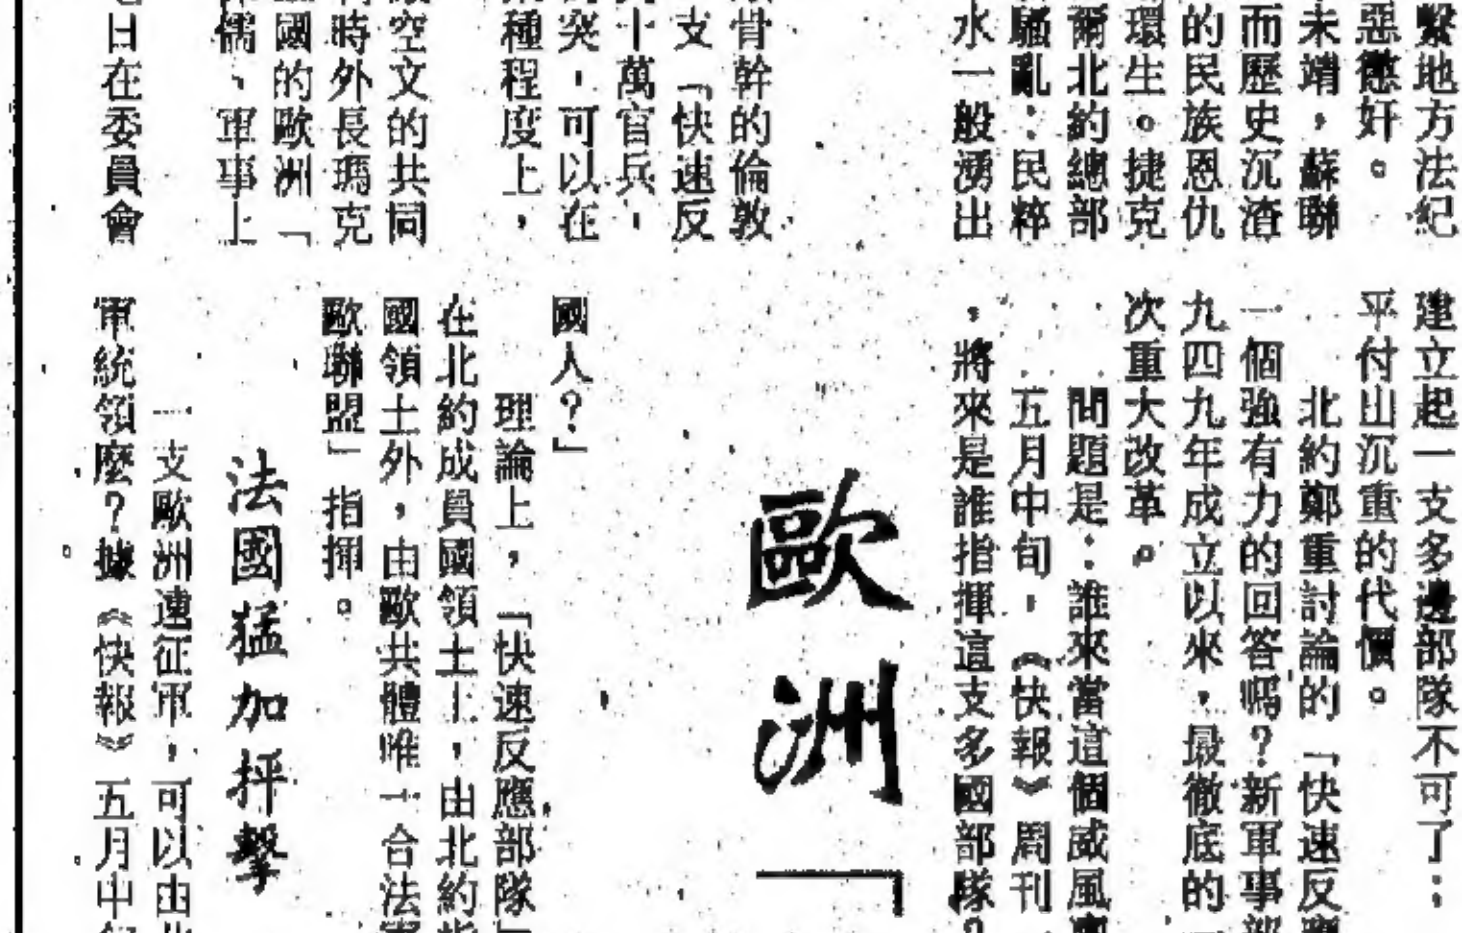 繫地方法紀
惡懲奸。
未靖，蘇聯
而歷史沉渣
的民族恩仇
環生。捷克
爾北約總部
騷亂：民粹
水一般湧出
骨幹的倫敦
支「快速反
十萬官兵，
突，可以在
種程度上，
空文的共同
時外長瑪克
國的歐洲「
儒、軍事上
日在委員會
建立起一支多邊部隊不可了；
平付出沉重的代價。
北約鄭重討論的「快速反應
一個強有力的回答嗎？新軍事部
九四九年成立以來，最徹底的
次重大改革。
問題是：誰來當這個威風
五月中旬，《快報》周刊
，將來是誰指揮這支多國部隊？
歐洲「
國人？」
理論上，「快速反應部隊」
在北約成員國領土上，由北約指
國領土外，由歐共體唯一合法軍
歐聯盟」指揮。
法國猛加抨擊
一支歐洲遠征軍，可以由北
軍統領麼？據《快報》五月中旬